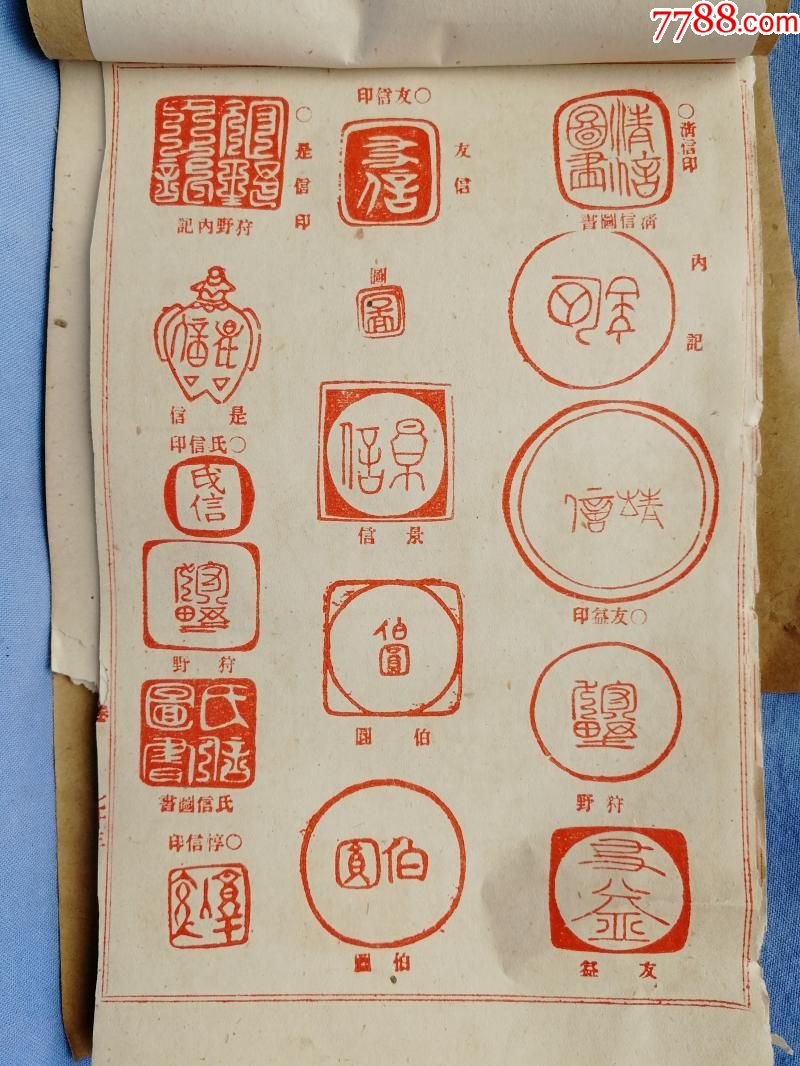 7788.com
○清信印
清信圖書
內記
○友益印
狩野
友益
○友信印
友信
圖
景信
伯圓
伯圓
○是信印
狩野內記
是信
○氏信印
氏信
狩野
氏信圖書
○惇信印